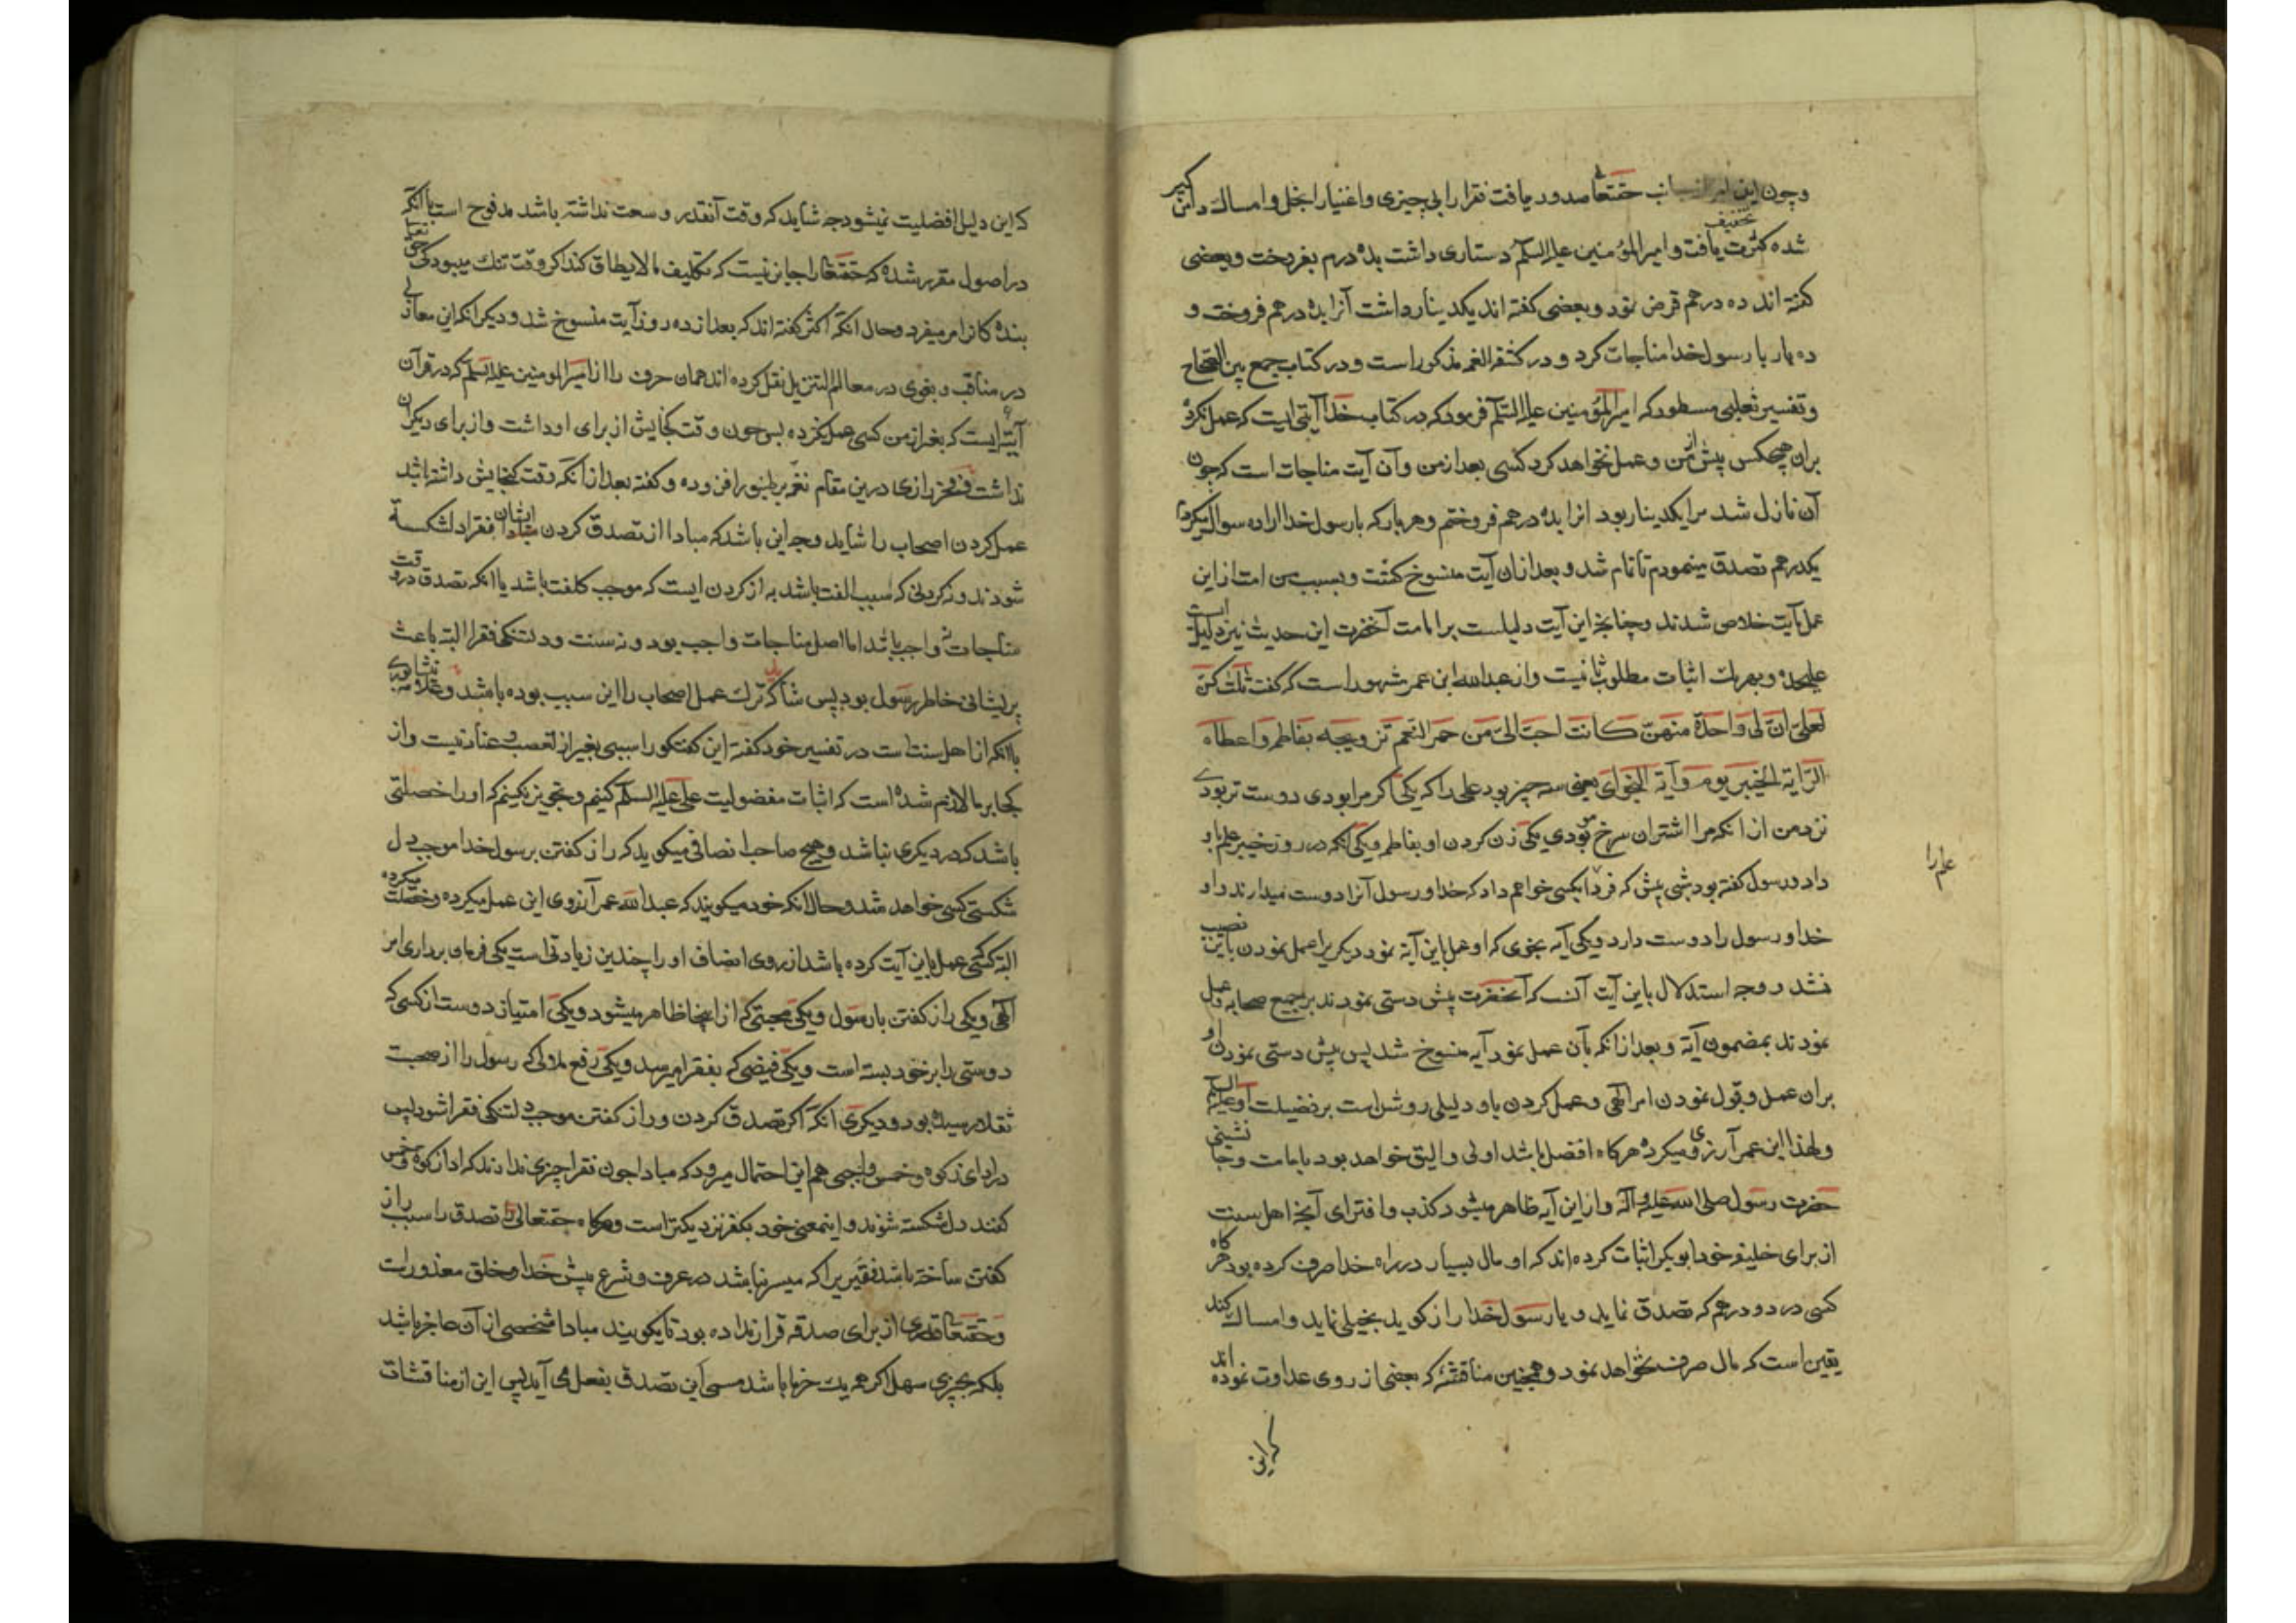 وچون این امر از جانب حقتعالی صدور یافت فقرا را بی چیزی و اغنیا را بخل و امساک دامن کیر
شده کثرت تخفیف یافت و امیر المؤمنین علیه السلم دستاری داشت بده درم بفروخت و بعضی
کفته اند ده درهم قرض نمود و بعضی کفته اند یکدینار داشت آنرا بده درهم فروخت و
ده بار با رسول خدا مناجات کرد و در کشف الغمه مذکور است و در کتاب جمع بین الصحاح
و تفسیر ثعلبی مسطور که امیر المؤمنین علیه السلم فرمود که در کتاب خدا آیتی ایست که عمل نکرده
بران هیچکس پیش از من و عمل نخواهد کرد کسی بعد از من و آن آیت مناجات است که چون
آن نازل شد مرا یکدینار بود انرا بده درهم فروختم و هر بار که با رسول خدا اراده سوال میکردم
یکدرهم تصدق مینمودم تا تمام شد و بعد ازان آیت منسوخ کشت و بسبب من امت از این
عمل بآیت خلاص شدند و چنانچه این آیت دلیلست بر امامت آنحضرت این حدیث نیز دلیل است
علیحده و بهر یک اثبات مطلوب ثانیست و از عبدالله ابن عمر مشهور است که کفت ثلث کن
لعلی ان لی واحدة منهن کانت احب الی من حمر النعم تزویجه بفاطمه و اعطاه
الرایة الخیبر یوم و آیة النجوای یعنی سه چیز بود علی را که یکی اکر مرا بودی دوست تر بودی
نزد من از انکه مرا اشتران سرخ مو بودی یکی زن کردن او بفاطمه و یکی انکه در روز خیبر علم باو
علم را
داد و رسول کفته بود شبی پیش که فردا بکسی خواهم داد که خدا و رسول آنرا دوست میدارند و او
خدا و رسول را دوست دارد و یکی آیه نجوی که او عمل باین آیة نمود دیکریرا عمل نمودن باین نصیب
نشد و وجه استدلال باین آیت آنست که آنحضرت پیش دستی نمودند بر جمیع صحابه و عمل
نمودند بمضمون آیة و بعد از انکه بآن عمل نمود آیه منسوخ شد پس پیش دستی نمودن او
بران عمل و قبول نمودن امر الهی و عمل کردن باو دلیلی روشن است بر فضیلت او علیه السلم
و لهذا ابن عمر آرزوی میکرد هر کاه افضل باشد اولی و الیق خواهد بود بامامت و جا نشینی
حضرت رسول صلی الله علیه و آله و از این آیه ظاهر میشود کذب و افترای آنچه اهل سنت
از برای خلیفه خود ابوبکر اثبات کرده اند که او مال بسیار در راه خدا صرف کرده بود هر کاه
کسی در دو درهم که تصدق نماید و با رسول خدا راز کوید بخیلی نماید و امساک کند
یقین است که مال صرف نخواهد نمود و همچنین مناقشهٔ که بعضی از روی عداوت نموده اند
که این
که این دلیل افضلیت نمیشود چه شاید که وقت آنقدر وسعت نداشته باشد مدفوع است با آنکه
در اصول مقرر شده که حقتعالی را جایز نیست که تکلیف مالایطاق کند اکر وقت تنک میبود کی حق تعالی
بنده کانرا امر میفرمود و حال انکه اکثر کفته اند که بعد از ده روز آیت منسوخ شد و دیکر انکه ابن مغازلی
در مناقب و بغوی در معالم التنزیل نقل کرده اند همان حرف را از امیر المومنین علیه السلم که در قرآن
آیتهٔ ایست که بغیر از من کسی عمل نکرده پس چون وقت کنجایش از برای او داشت و از برای دیکران
نداشت و فخر رازی درین مقام نغمه بر طنبور افزوده و کفته بعد از انکه وقت کنجایش داشته باشد
عمل کردن اصحاب را شاید وجه این باشد که مبادا از تصدق کردن ایشان فقرا دلشکسته
شوند و نه کردنی که سبب الفت باشد به از کردن ایست که موجب کلفت باشد یا انکه تصدق در وقت
مناجات نه واجب باشد اما اصل مناجات واجب بود و نه سنت و دلتنکی فقرا البته باعث
پریشانی خاطر رسول بود پس شاید که ترک عمل اصحاب را این سبب بوده باشد و علامه نیشابوری
با انکه از اهل سنت است در تفسیر خود کفته این کفتکو را سببی بغیر از تعصب و عناد نیست و از
کجا بر ما لازم شده است که اثبات مفضولیت علی علیه السلم کنیم و تجویز نکنیم که او را خصلتی
باشد که در دیکری نباشد و هیچ صاحب انصافی میکوید که راز کفتن برسول خدا موجب دل
شکستکی کسی خواهد شد و حال انکه خود میکویند که عبدالله عمر آرزوی این عمل میکرده و خصلت
البته کسی عمل باین آیت کرده باشد از روی انصاف او را چندین زیادتی است یکی فرمان برداری امر
الهی و یکی راز کفتن با رسول و یکی محبتی که از اینجا ظاهر میشود و یکی امتیاز دوست از کسی که
دوستی را بر خود بسته است و یکی فیضی که بفقرا میرسد و یکی رفع ملالی که رسول را از صحبت
ثقلا رسیده بود و دیکری انکه اکر تصدق کردن و راز کفتن موجب دلتنکی فقرا شود پس
در ادای زکوة و خمس واجبی هم این احتمال میرود که مبادا چون فقرا چیزی ندارند که ادا زکوة و خمس
کنند دل شکسته شوند و اینمعنی خود بکفر نزدیکتر است و هر کاه حقتعالی تصدق را سبب راز
کفتن ساخته باشد فقیریرا که میسر نباشد در عرف و شرع پیش خدا و خلق معذور است
و حقتعالی قدری از برای صدقه قرار نداده بود تا بکویند مبادا شخصی از آن عاجز باشد
بلکه بچیزی سهل اکر همه یک خرما باشد مسمی این تصدق بفعل می آید پس این از مناقشات